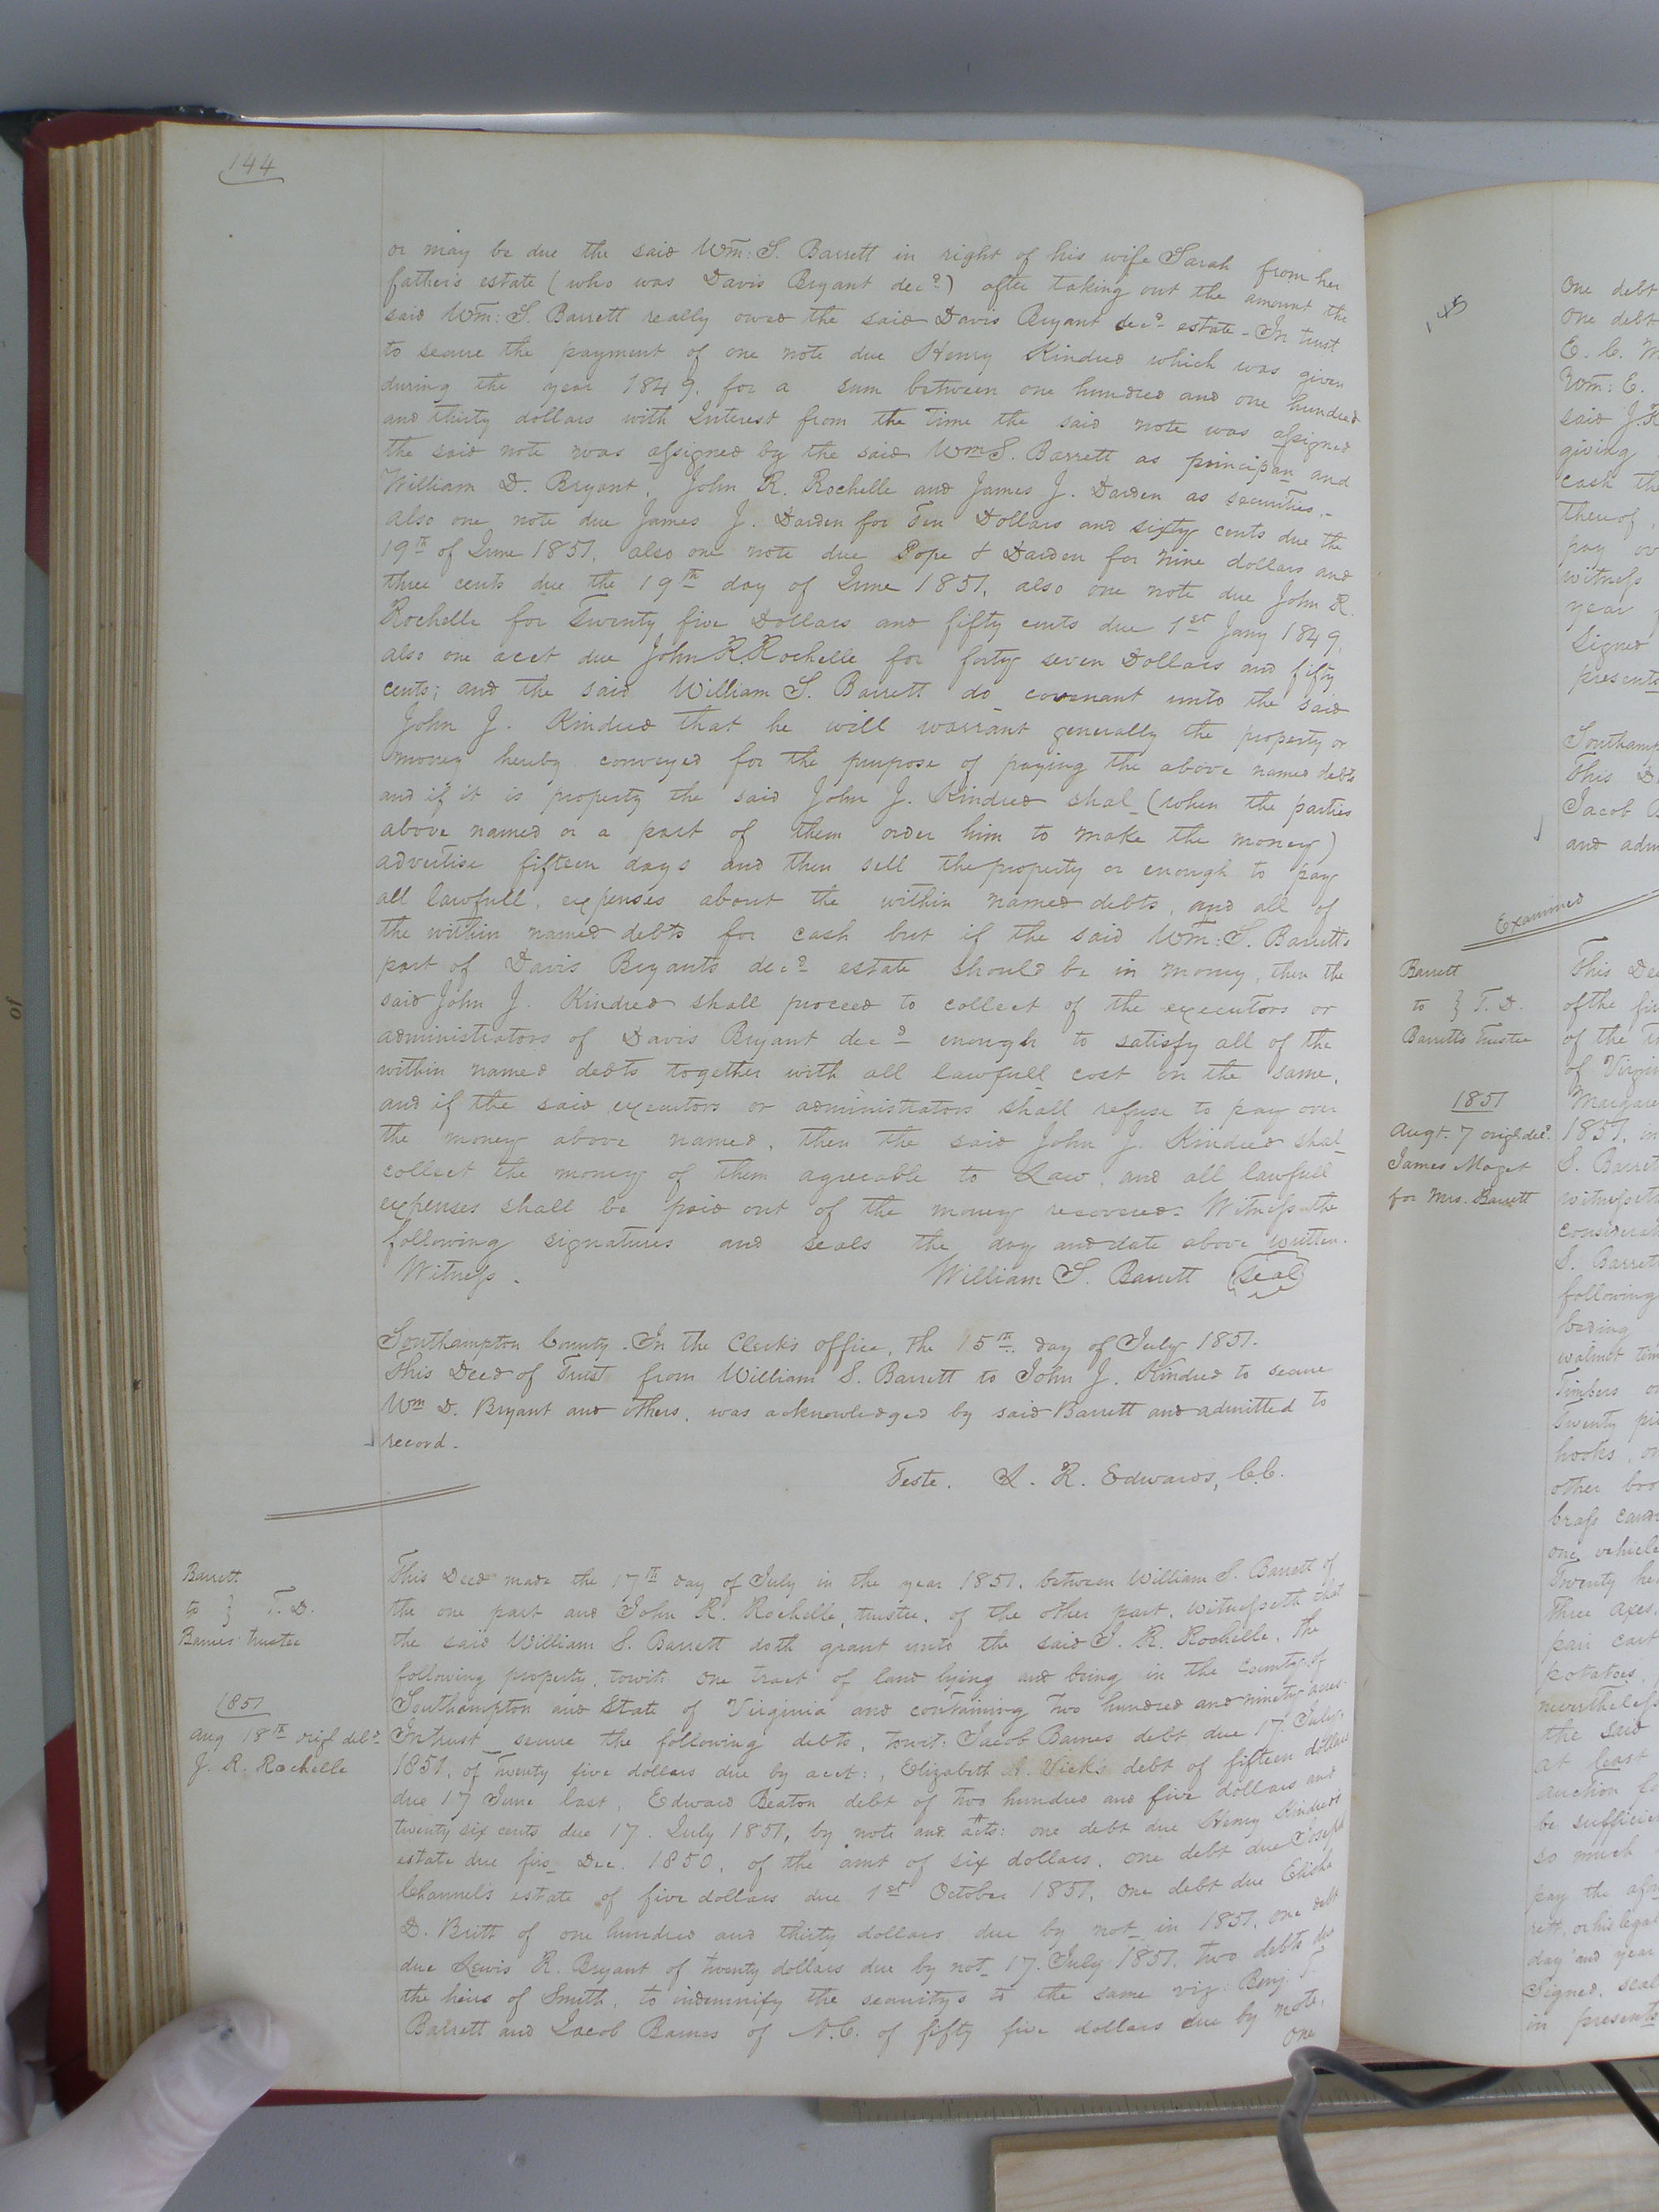 144
or may be due the said Wm: S. Barrett in right of his wife Sarah from her
fathers estate (who was Davis Bryant decd) after taking out the amount the
said Wm: S. Barrett really owed the said Davis Bryant decd estate - In trust
to secure the payment of one note due Henry Kindred which was given
during the year 1849. for a sum between one hundred and one hundred
and thirty dollars with Interest from the time the said note was assigned
the said note was assigned by the said Wm S. Barrett as principan and
William D. Bryant, John R. Rochelle and James J. Darden as securities. -
also one note due James J. Darden for Ten Dollars and sixty cents due the
19th of June 1851, also one note due Pope & Darden for nine dollars and
three cents due the 19th day of June 1851, also one note due John R.
Rochelle for Twenty five Dollars and fifty cents due 1st Jany 1849,
also one acct due John R Rochelle for forty seven Dollars and fifty
cents; and the said William S. Barrett do covenant unto the said
John J. Kindred that he will warrant generally the property or
money hereby conveyed for the purpose of paying the above named debts
and if it is property the said John J. Kindred shal (when the parties
above named or a part of them order him to make the money)
advertise fifteen days and then sell the property or enough to pay
all lawfull expenses about the within named debts, and all of
the within named debts for cash but if the said Wm: S. Barretts
part of Davis Bryants decd estate should be in money, then the
said John J. Kindred shall proceed to collect of the executors or
administrators of Davis Bryant decd enough to satisfy all of the
within named debts together with all lawfull cost on the same,
and if the said executors or administrators shall refuse to pay over
the money above named, then the said John J. Kindred shal
collect the money of them agreeable to Law, and all lawfull
expenses shall be paid out of the money recovered. Witness the
following signatures and seals the day and date above written.
Witness. William S. Barrett (seal)
Southampton County. In the Clerk's office, the 15th day of July 1851.
This Deed of Trust from William S. Barrett to John J. Kindred to secure
Wm D. Bryant and others, was acknowledged by said Barrett and admitted to
record.
Teste. L. R. Edwards, C.C.
Barrett
to } T. D.
Barnes trustee
1851
Aug 18th origl deld
J. R. Rochelle
This Deed made the 17th day of July in the year 1851, between William S. Barrett of
the one part and John R. Rochelle, trustee, of the other part, Witnesseth that
the said William S. Barrett doth grant unto the said J. R. Rochelle, the
following property, towit: one tract of land lying and being in the County of
Southampton and State of Virginia and containing two hundred and ninety acres.
In trust secure the following debts, towit: Jacob Barnes debt due 17. July,
1851, of Twenty five dollars due by acct:, Elizabeth A. Vick's debt of fifteen dollars
due 17 June last, Edward Beaton debt of two hundred and five dollars and
twenty six cents due 17. July 1851, by note and acts: one debt due Henry Kindred's
estate due firs Dec. 1850, of the amt of six dollars, one debt due Joseph
Channel's estate of five dollars due 1st October 1851, one debt due Elisha
D. Britt of one hundred and thirty dollars due by not in 1851, one debt
due Lewis R. Bryant of twenty dollars due by not 17. July 1851, two debts due
the heirs of Smith, to indemnify the security's to the same viz: Benj. T.
Barrett and Jacob Barnes of N.C. of fifty five dollars due by note,
one
145
One debt
One debt
E. C.
Wm: E.
said J. R
giving
cash the
thereof,
pay ov
witness
year
Signed
presents
Southamp
This D
Jacob B
and adm
Examined
Barrett
to } T. D.
Barretts Trustee
1851
Augt. 7 origl deld.
James Maget
for Mrs. Barrett
This Dee
of the fir
of the
of Virgin
Margare
1851, in
S. Barrett
witnesseth
considerat
S. Barrett
following
beding
walnut tim
Timbers or
Twenty pi
hooks, on
other boo
brass cand
one vehicle
Twenty he
three axes,
pair cart
potatoes,
nevertheless
the said
at least
auction fo
be sufficien
so much
pay the afo
rett, or his legal
day and year
Signed, seal
in presents